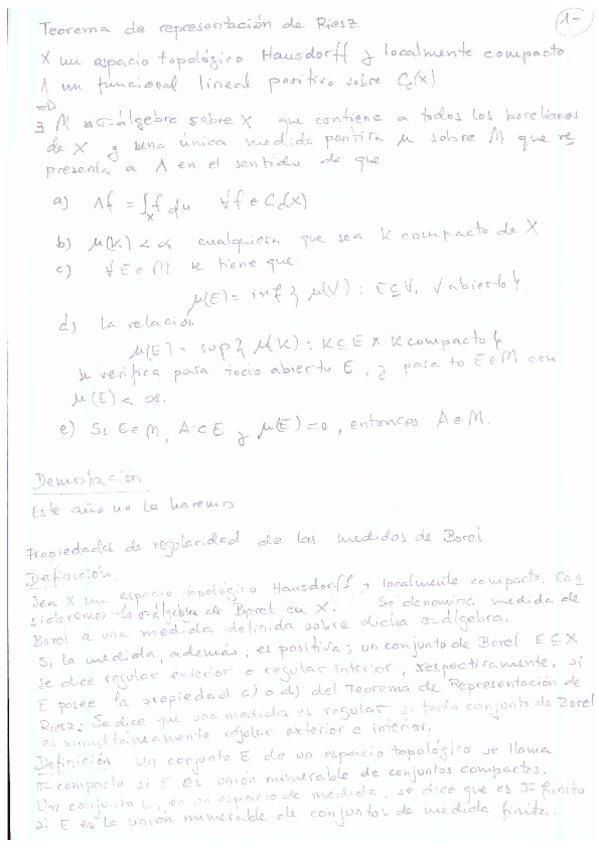 Teorema de representación de Riesz
1-
X un espacio topológico Hausdorff y localmente compacto
Λ un funcional lineal positivo sobre Cc(X)
⇒
∃ M σ-álgebra sobre X que contiene a todos los borelianos
de X y una única medida positiva μ sobre M que re
presenta a Λ en el sentido de que
a) Λf = ∫_X f dμ ∀f ∈ Cc(X)
b) μ(K) < ∞ cualquiera que sea K compacto de X
c) ∀E ∈ M se tiene que.
μ(E) = inf { μ(V) : E ⊆ V, V abierto }
d) la relación
μ(E) = sup { μ(K) : K ⊆ E K compacto }
se verifica para todo abierto E, y para to E ∈ M con
μ(E) < ∞.
e) Si E ∈ M, A ⊂ E y μ(E) = 0, entonces A ∈ M.
Demostración
Este año no la haremos
Propiedades de regularidad de las medidas de Borel
Definición.
Sea X un espacio topológico Hausdorff y localmente compacto. Con
sideremos la σ-álgebra de Borel en X. Se denomina medida de
Borel a una medida definida sobre dicha σ-álgebra.
Si la medida, además, es positiva; un conjunto de Borel E ⊆ X
se dice regular exterior o regular interior, respectivamente, si
E posee la propiedad c) o d) del Teorema de Representación de
Riesz. Se dice que una medida es regular si todo conjunto de Borel
es simultáneamente regular exterior e interior.
Definición Un conjunto E de un espacio topológico se llama
σ-compacto si E es unión numerable de conjuntos compactos.
Un conjunto E, en un espacio de medida, se dice que es σ-finito
si E es la unión numerable de conjuntos de medida finita.